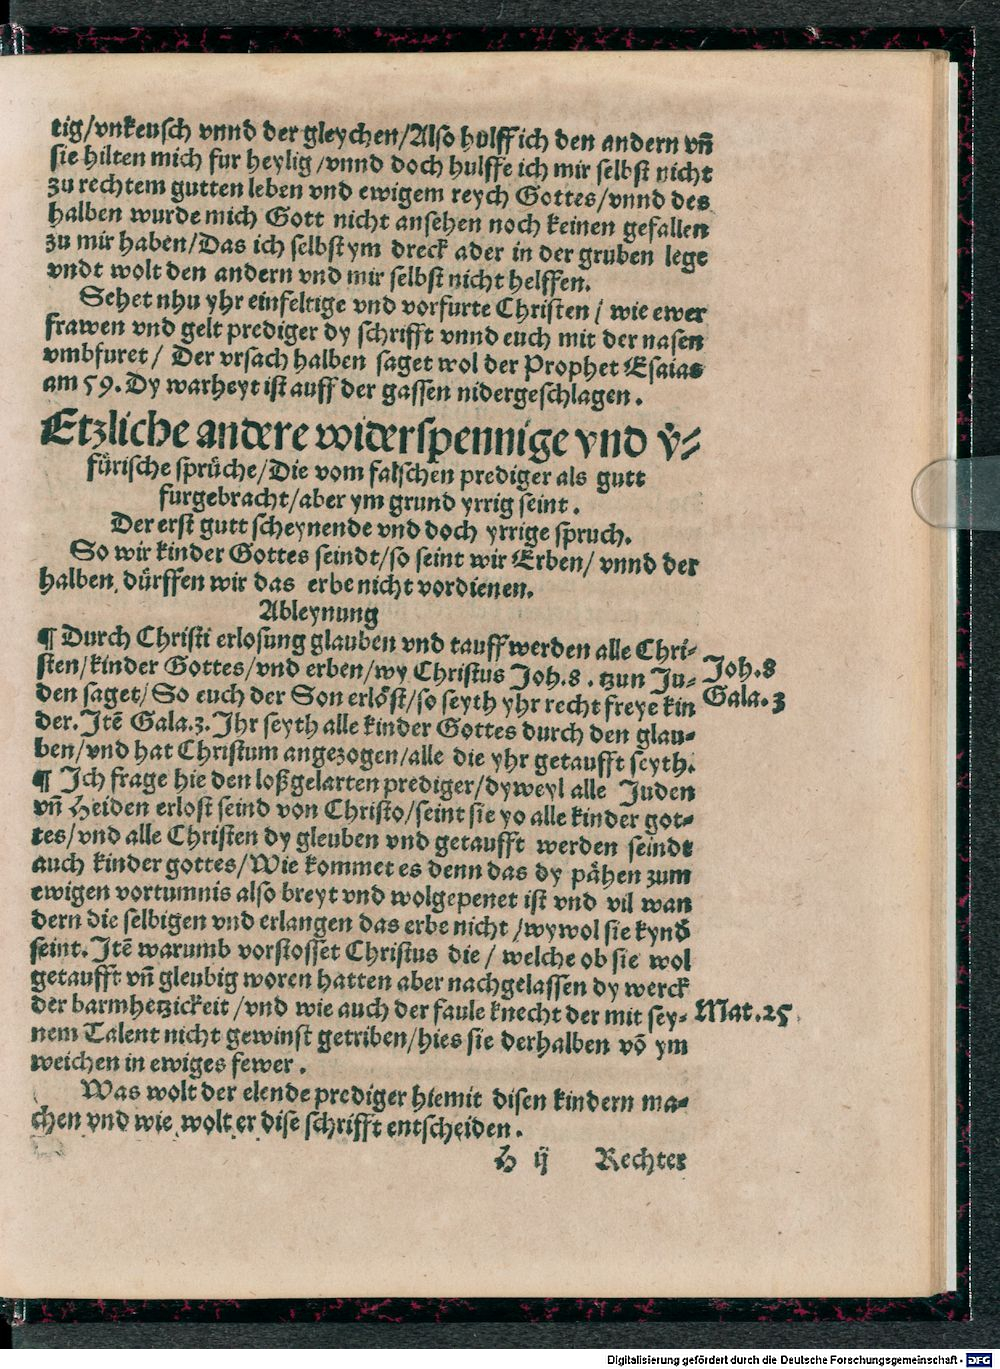 tig/vnkeusch vnnd der gleychen/Also hulff ich den andern vn̄
sie hilten mich fur heylig/vnnd doch hulffe ich mir selbst nicht
zu rechtem gutten leben vnd ewigem reych Gottes/vnnd des
halben wurde mich Gott nicht ansehen noch keinen gefallen
zu mir haben/Das ich selbst ym dreck ader in der gruben lege
vndt wolt den andern vnd mir selbst nicht helffen.
Sehet nhu yhr einfeltige vnd vorfurte Christen/ wie ewer
frawen vnd gelt prediger dy schrifft vnnd euch mit der nasen
vmbfuret/ Der vrsach halben saget wol der Prophet Esaias
am 59. Dy warheyt ist auff der gassen nidergeschlagen.
Etzliche andere widerspennige vnd v̊⸗
fůrische sprůche/Die vom falschen prediger als gutt
furgebracht/aber ym grund yrrig seint.
Der erst gutt scheynende vnd doch yrrige spruch.
So wir kinder Gottes seindt/so seint wir Erben/ vnnd der
halben dürffen wir das erbe nicht vordienen.
Ableynung
¶ Durch Christi erlosung glauben vnd tauff werden alle Chri⸗
sten/kinder Gottes/vnd erben/wy Christus Joh.8. tzun Ju⸗
Joh.8
den saget/So euch der Son erlöst/so seyth yhr recht freye kin
Gala.3
der. Itē Gala.3. Ihr seyth alle kinder Gottes durch den glau⸗
ben/vnd hat Christum angezogen/alle die yhr getaufft seyth.
¶ Ich frage hie den loßgelarten prediger/dyweyl alle Juden
vn̄ Heiden erlost seind von Christo/seint sie yo alle kinder got⸗
tes/vnd alle Christen dy gleuben vnd getaufft werden seindt
auch kinder gottes/Wie kommet es denn das dy pähen zum
ewigen vortumnis also breyt vnd wolgepenet ist vnd vil wan
dern die selbigen vnd erlangen das erbe nicht/wywol sie kynd
seint. Itē warumb vorstosset Christus die/ welche ob sie wol
getaufft vn̄ gleubig woren hatten aber nachgelassen dy werck
der barmhetzickeit/vnd wie auch der faule knecht der mit sey⸗
Mat.25
nem Talent nicht gewinst getriben/hies sie derhalben vō ym
weichen in ewiges fewer.
Was wolt der elende prediger hiemit disen kindern ma⸗
chen vnd wie wolt er dise schrifft entscheiden.
H ij Rechter
Digitalisierung gefördert durch die Deutsche Forschungsgemeinschaft - DFG